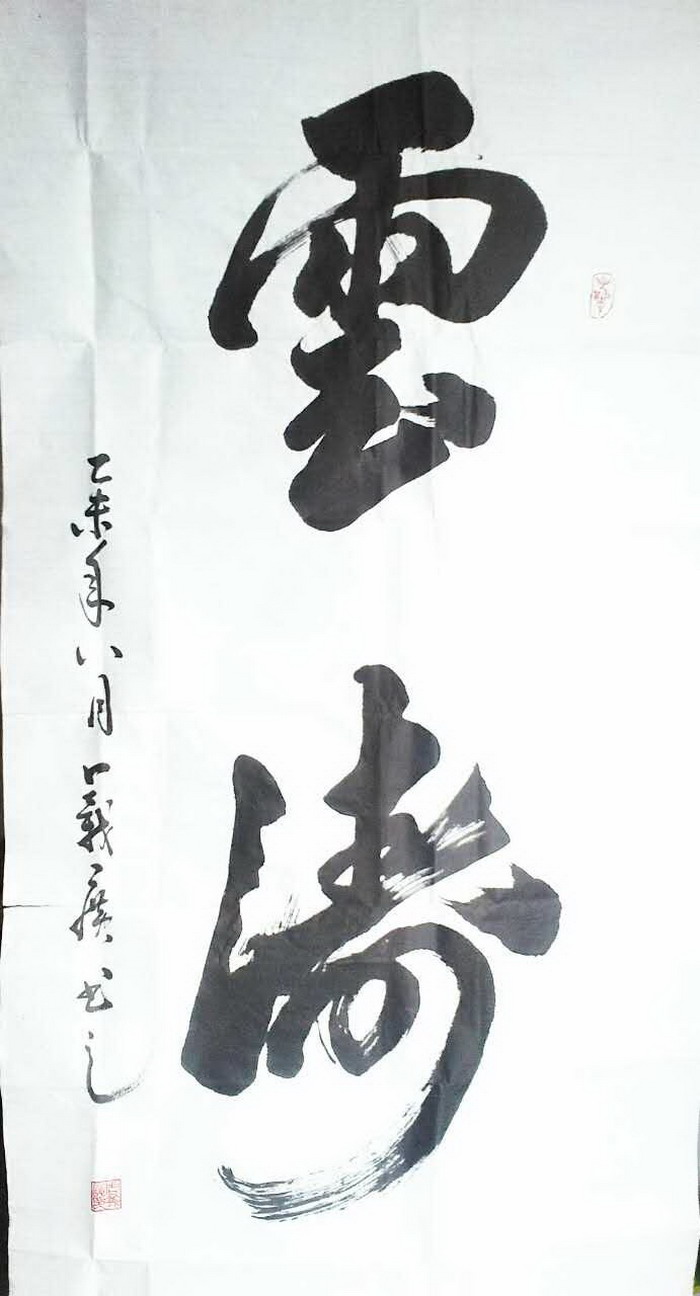 雲濤
乙未年八月 義廣书之